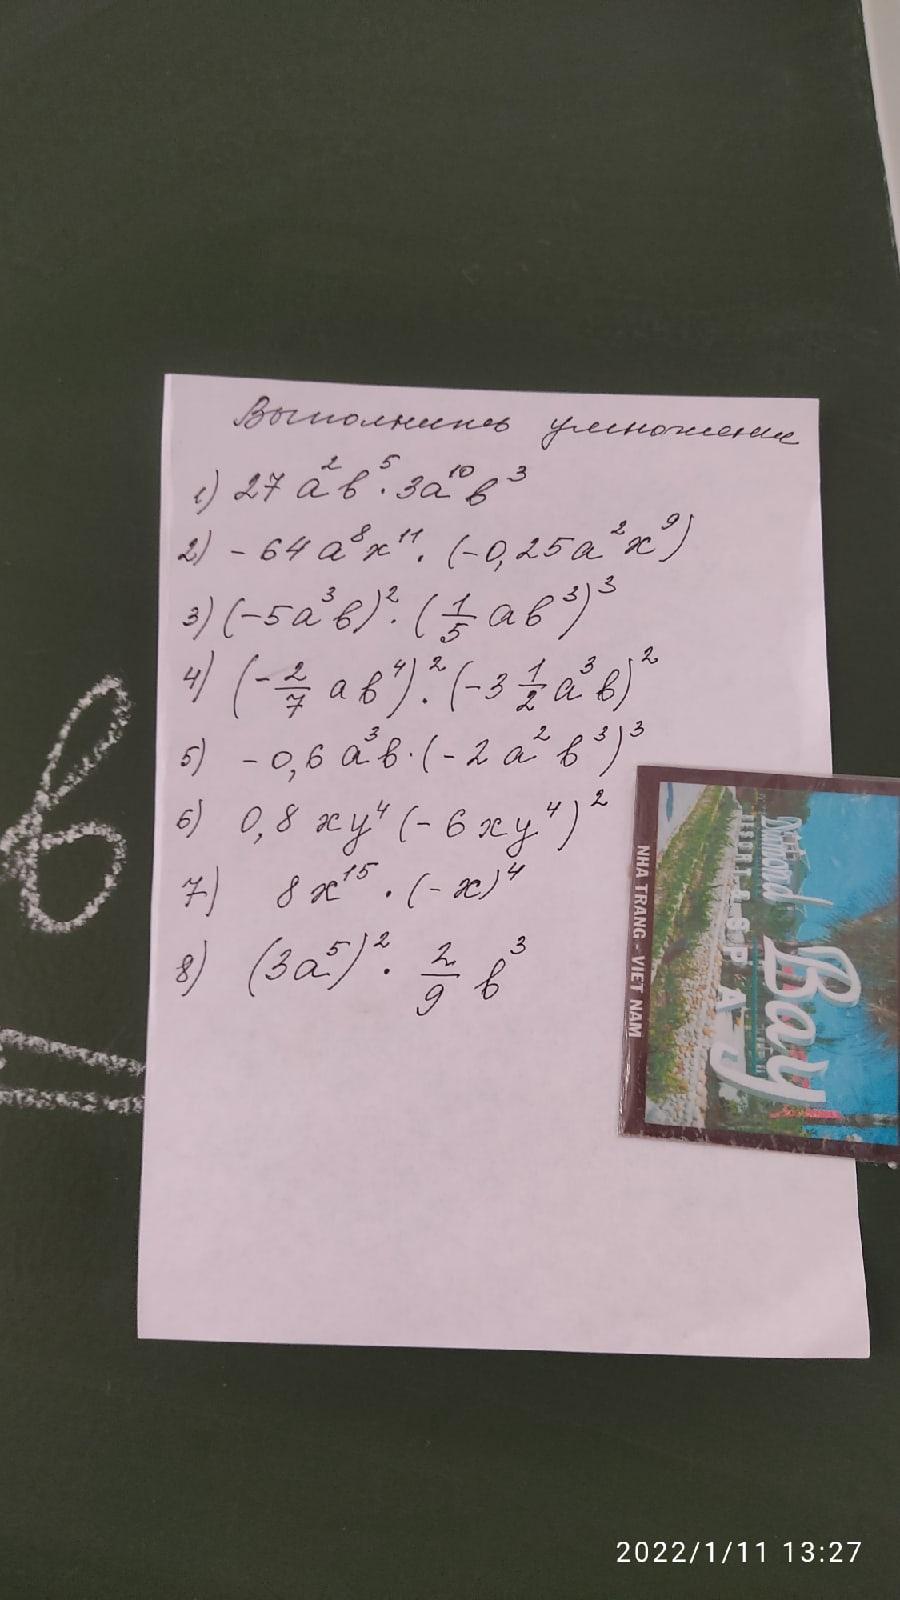 Выполнить умножение
1) 27a²b⁵ · 3a¹⁰b³
2) -64a⁸x¹¹ · (-0,25a²x⁹)
3) (-5a³b)² · (1/5 ab³)³
4) (-2/7 ab⁴)² · (-3 1/2 a³b)²
5) -0,6a³b · (-2a²b³)³
6) 0,8xy⁴(-6xy⁴)²
7) 8x¹⁵ · (-x)⁴
8) (3a⁵)² · 2/9 b³
Diamond Bay
NHA TRANG - VIET NAM
2022/1/11 13:27